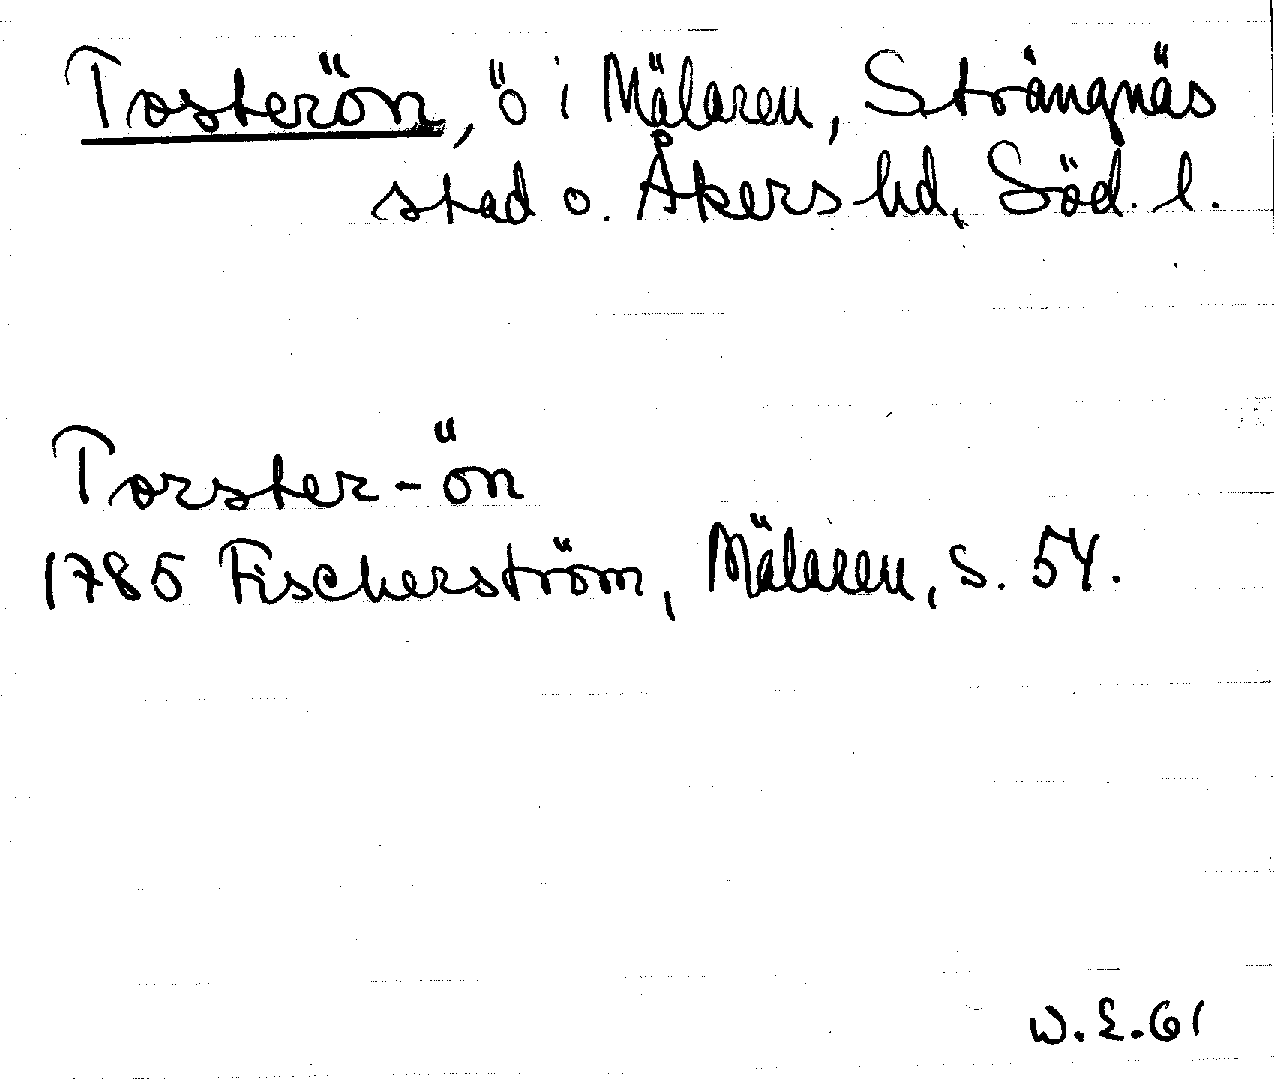 Tosterön, ö i Mälaren, Strängnäs
stad o. Åkers hd, Söd. l.
Torster-ön
1785 Fischerström, Mälaren, s. 54.
W.E.61